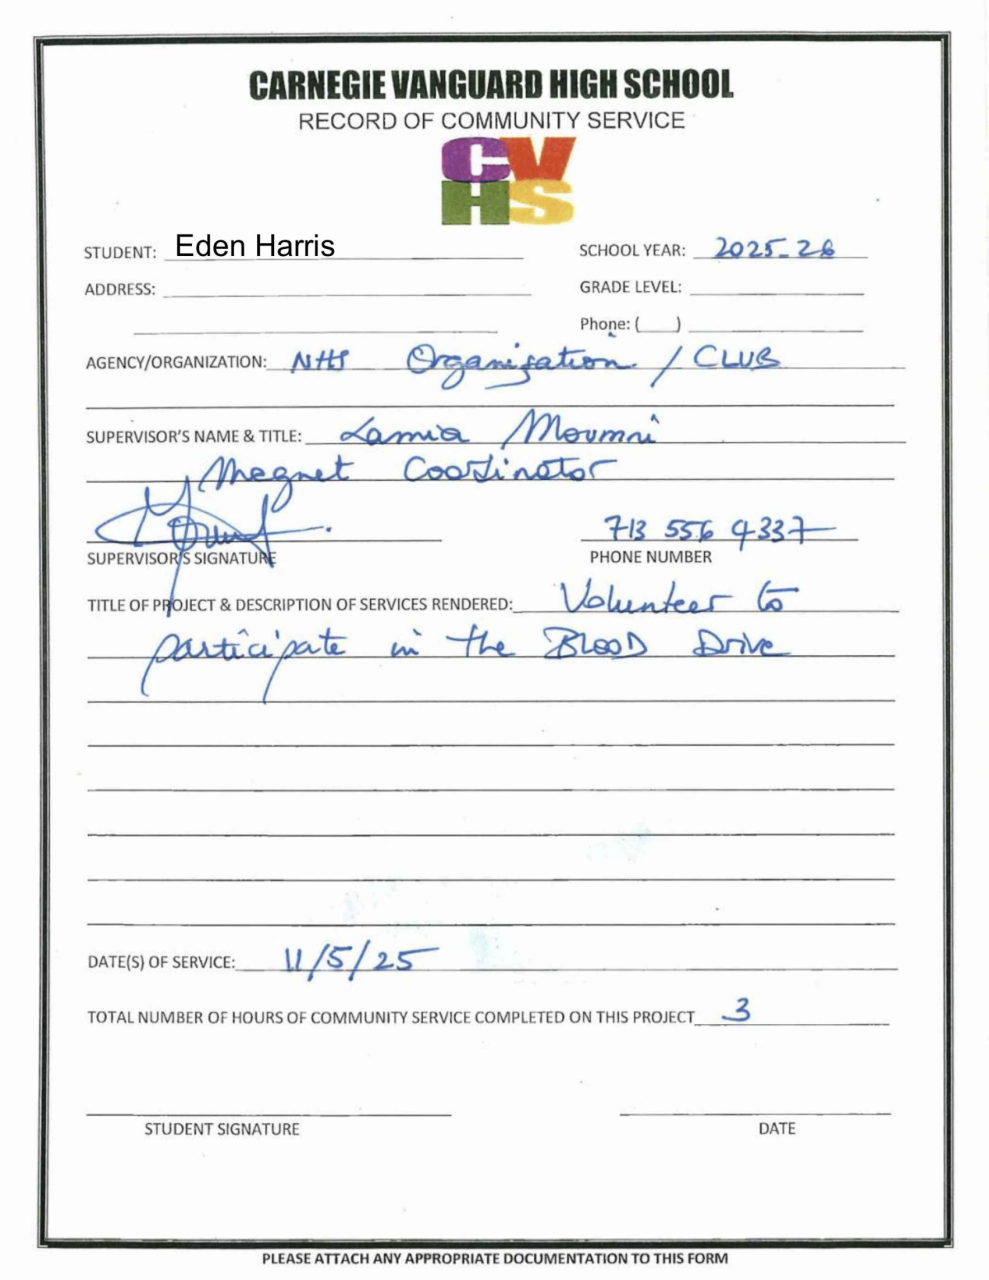 CARNEGIE VANGUARD HIGH SCHOOL
RECORD OF COMMUNITY SERVICE
CV
HS
STUDENT: Eden Harris SCHOOL YEAR: 2025-26
ADDRESS: GRADE LEVEL:
Phone: ( )
AGENCY/ORGANIZATION: NHS Organisation / CLUB
SUPERVISOR'S NAME & TITLE: Lamia Moumni
Magnet Coordinator
713 556 9337
SUPERVISOR'S SIGNATURE PHONE NUMBER
TITLE OF PROJECT & DESCRIPTION OF SERVICES RENDERED: Volunteer to
participate in the BLOOD Drive
DATE(S) OF SERVICE: 11/5/25
TOTAL NUMBER OF HOURS OF COMMUNITY SERVICE COMPLETED ON THIS PROJECT 3
STUDENT SIGNATURE DATE
PLEASE ATTACH ANY APPROPRIATE DOCUMENTATION TO THIS FORM